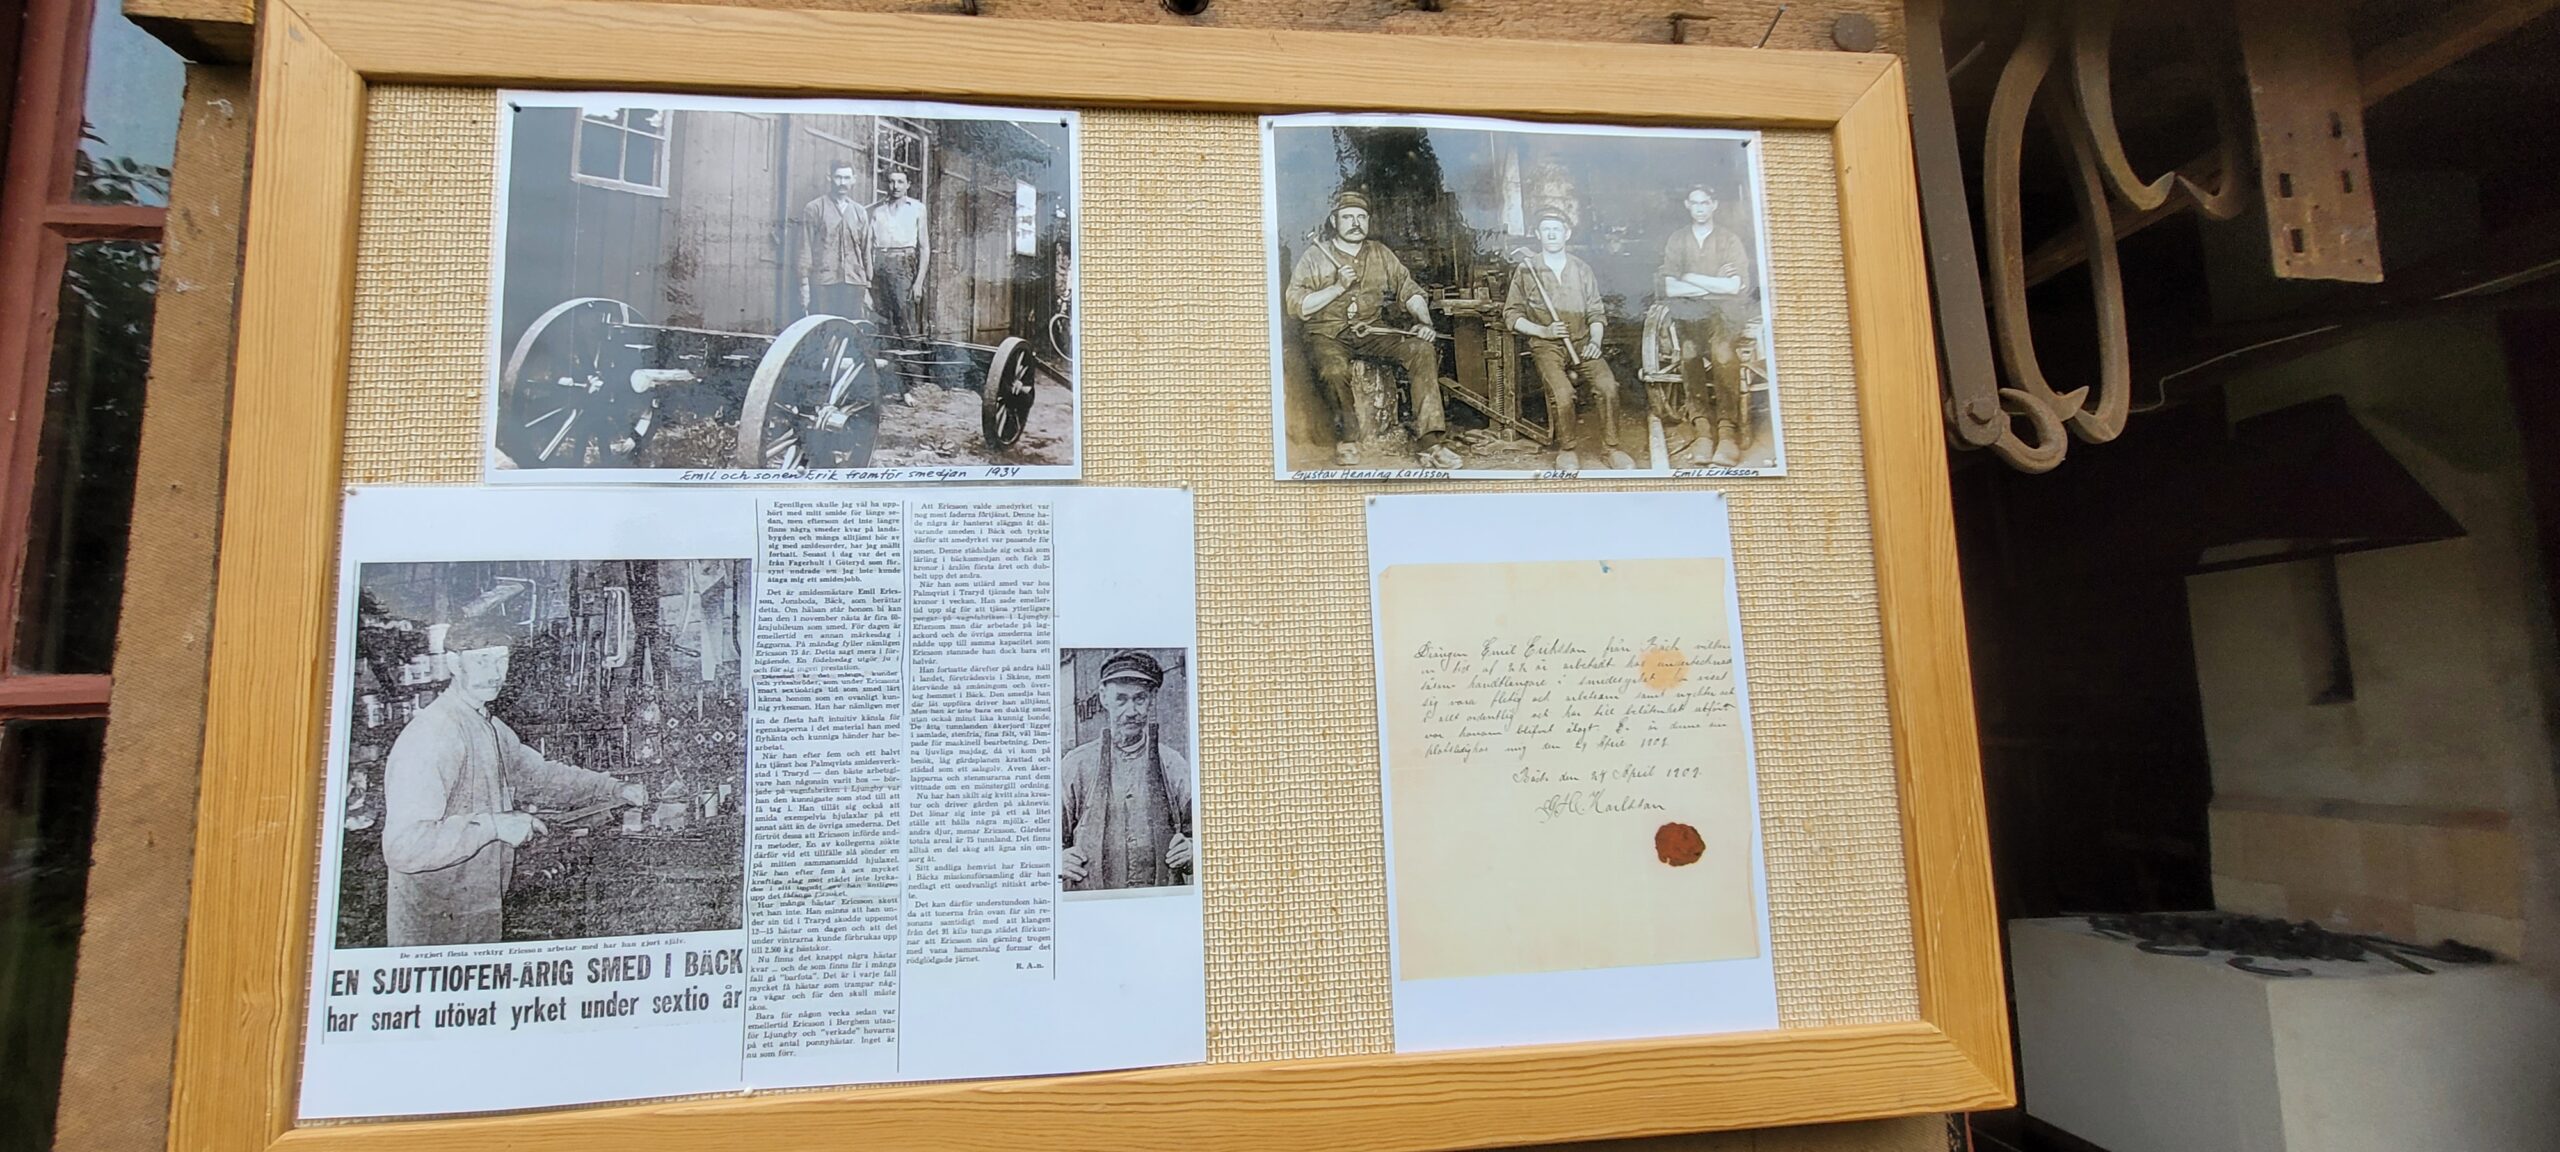 Emil och sonen Erik framför smedjan 1934
Gustav Henning Karlsson
Okänd
Emil Eriksson
De avgjort flesta verktyg Ericsson arbetar med har han gjort själv.
EN SJUTTIOFEM-ÅRIG SMED I BÄCK
har snart utövat yrket under sextio år
Egentligen skulle jag väl ha upp-
hört med mitt smide för länge se-
dan, men eftersom det inte längre
finns några smeder kvar på lands-
bygden och många alltjämt hör av
sig med smidesorder, har jag snällt
fortsatt. Senast i dag var det en
från Fagerhult i Göteryd som för-
synt undrade om jag inte kunde
åtaga mig ett smidesjobb.
Det är smidesmästare Emil Erics-
son, Jonsboda, Bäck, som berättar
detta. Om hälsan står honom bi kan
han den 1 november nästa år fira 60-
årsjubileum som smed. För dagen är
emellertid en annan märkesdag i
faggorna. På måndag fyller nämligen
Ericsson 75 år. Detta sagt mera i för-
bigående. En födelsedag utgör ju i
och för sig ingen prestation.
Däremot är det många, kunder
och yrkesbröder, som under Ericssons
snart sextioåriga tid som smed lärt
känna honom som en ovanligt kun-
nig yrkesman. Han har nämligen mer
än de flesta haft intuitiv känsla för
egenskaperna i det material han med
flyhänta och kunniga händer har be-
arbetat.
När han efter fem och ett halvt
års tjänst hos Palmqvists smidesverk-
stad i Traryd — den bäste arbetsgi-
vare han någonsin varit hos — bör-
jade på vagnfabriken i Ljungby var
han den kunnigaste som stod till att
få tag i. Han tillät sig också att
smida exempelvis hjulaxlar på ett
annat sätt än de övriga smederna. Det
förtröt dessa att Ericsson införde and-
ra metoder. En av kollegerna sökte
därför vid ett tillfälle slå sönder en
på mitten sammansmidd hjulaxel.
När han efter fem à sex mycket
kraftiga slag mot städet inte lycka-
des i sitt uppsåt gav han äntligen
upp det fåfänga försöket.
Hur många hästar Ericsson skott
vet han inte. Han minns att han un-
der sin tid i Traryd skodde uppemot
12—15 hästar om dagen och att det
under vintrarna kunde förbrukas upp
till 2.500 kg hästskor.
Nu finns det knappt några hästar
kvar — och de som finns får i många
fall gå "barfota". Det är i varje fall
mycket få hästar som trampar någ-
ra vägar och för den skull måste
skos.
Bara för någon vecka sedan var
emellertid Ericsson i Berghem utan-
för Ljungby och "verkade" hovarna
på ett antal ponnyhästar. Inget är
nu som förr.
Att Ericsson valde smedyrket var
nog mest faderns förtjänst. Denne ha-
de några år hanterat släggan åt då-
varande smeden i Bäck och tyckte
därför att smedyrket var passande för
sonen. Denne städslade sig också som
lärling i bäckssmedjan och fick 25
kronor i årslön första året och dub-
belt upp det andra.
När han som utlärd smed var hos
Palmqvist i Traryd tjänade han tolv
kronor i veckan. Han sade emeller-
tid upp sig för att tjäna ytterligare
pengar på vagnfabriken i Ljungby.
Eftersom man där arbetade på lag-
ackord och de övriga smederna inte
nådde upp till samma kapacitet som
Ericsson stannade han dock bara ett
halvår.
Han fortsatte därefter på andra håll
i landet, företrädesvis i Skåne, men
återvände så småningom och över-
tog hemmet i Bäck. Den smedja han
där låt uppföra driver han alltjämt.
Men han är inte bara en duktig smed
utan också minst lika kunnig bonde.
De åtta tunnlanden åkerjord ligger
i samlade, stenfria, fina fält, väl läm-
pade för maskinell bearbetning. Den-
na ljuvliga majdag, då vi kom på
besök, låg gårdsplanen krattad och
städad som ett salsgolv. Även åker-
lapparna och stenmurarna runt dem
vittnade om en mönstergill ordning.
Nu har han skilt sig kvitt sina krea-
tur och driver gården på skånevis.
Det lönar sig inte på ett så litet
ställe att hålla några mjölk- eller
andra djur, menar Ericsson. Gårdens
totala areal är 75 tunnland. Det finns
alltså en del skog att ägna sin om-
sorg åt.
Sitt andliga hemvist har Ericsson
i Bäcks missionsförsamling där han
nedlagt ett osedvanligt nitiskt arbe-
te.
Det kan därför understundom hän-
da att tonerna från ovan får sin re-
sonans samtidigt med att klangen
från det 91 kilo tunga städet förkun-
nar att Ericsson sin gärning trogen
med vana hammarslag formar det
rödglödgade järnet.
R. A-n.
Drängen Emil Eriksson från Bäck
tid af 2½ år arbetadt hos undertecknad
såsom handtlangare i smedesyrket
sig vara flitig och arbetsam samt nyckter och
i allt ordentlig och har till belåtenhet utfört
var honom blifvit ålagt. E. är denna
mig den 24 April 1909
Bäck den 24 April 1909.
G.H. Karlsson